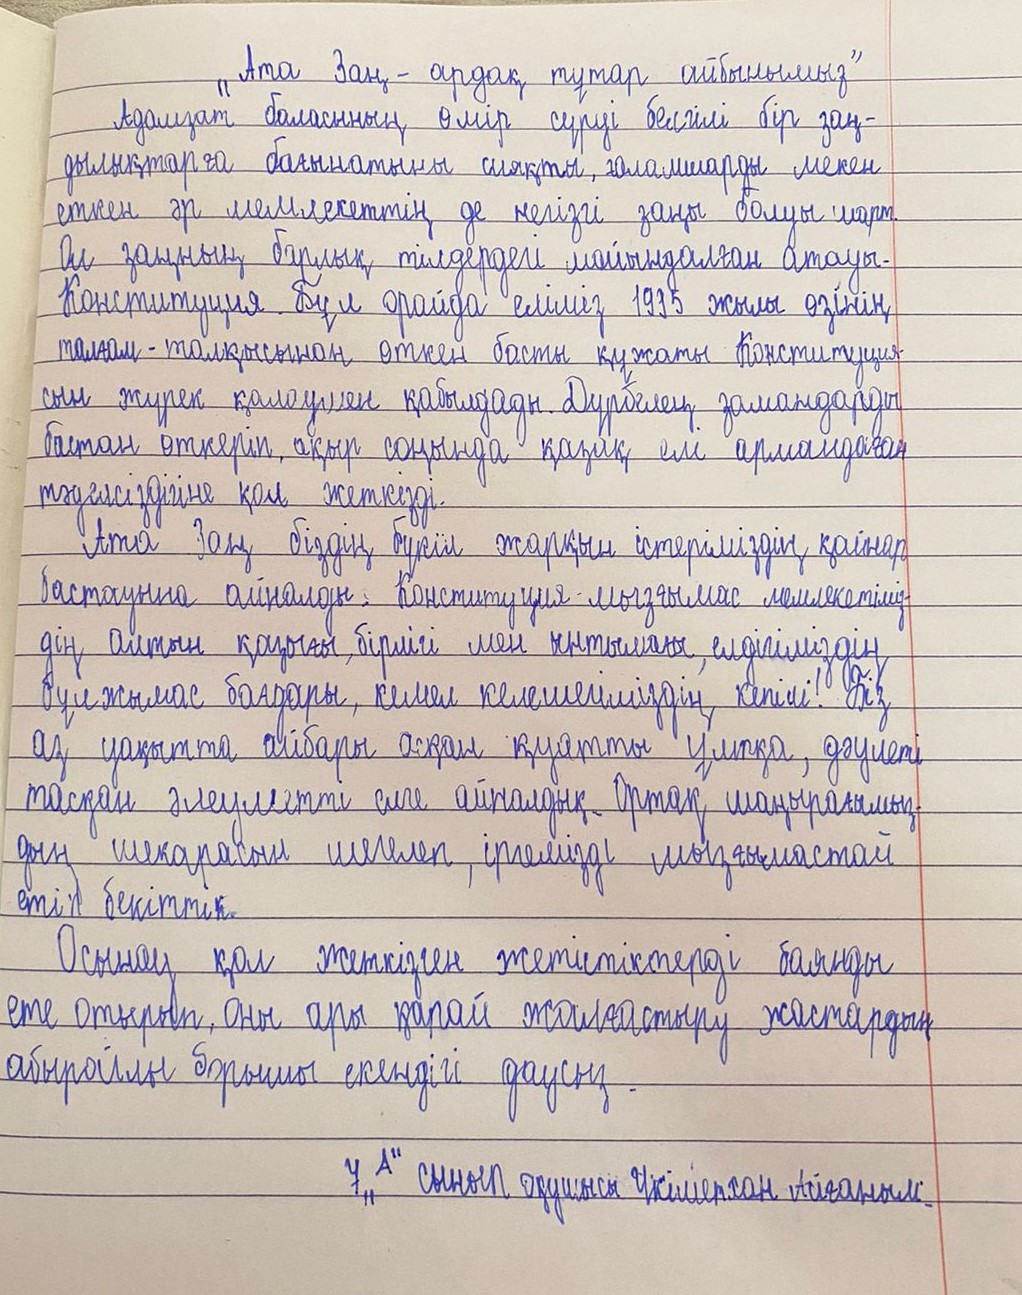 „Ата Заң - ардақ тұтар айбынымыз”
Адамзат баласының өмір сүруі белгілі бір заң-
дылықтарға бағынатыны сияқты, ғаламшарды мекен
еткен әр мемлекеттің де негізгі заңы болуы шарт.
Ол заңның барлық тілдердегі майындалған атауы-
Конституция. Бұл орайда еліміз 1995 жылы өзінің
талғам-талқысынан өткен басты құжаты Конституция-
сын жүрек қалауымен қабылдады. Дүрбелең замандарды
бастан өткеріп, ақыр соңында қазақ елі армандаған
тәуелсіздігіне қол жеткізді.
Ата Заң біздің бүкіл жарқын істеріміздің қайнар
бастауына айналды. Конституция-мызғымас мемлекетіміз-
дің алтын қазығы, бірлігі мен ынтымағы, елдігіміздің
бұлжымас балдары, кемел келешегіміздің кепілі! Біз
аз уақытта айбары асқан қуатты ұлтқа, дәулеті
тасқан әлеуметті елге айналдық. Ортақ шаңырағымыз-
дың шекарасын шегелеп, іргемізді мызғымастай
етіп бекіттік.
Осынау қол жеткізген жетістіктерді баянды
ете отырып, оны ары қарай жалғастыру жастардың
абыройлы борышы екендігі даусыз.
7 „А“ сынып оқушысы Айғаным.